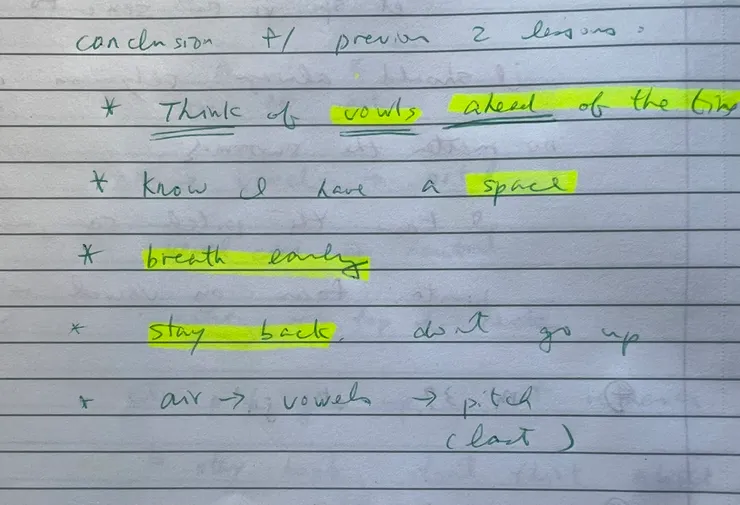 conclusion f/ previou 2 lessons:
* Think of vowls ahead of the time
* know I have a space
* breath early
* stay back. don't go up
* air → vowels → pitch
(last)